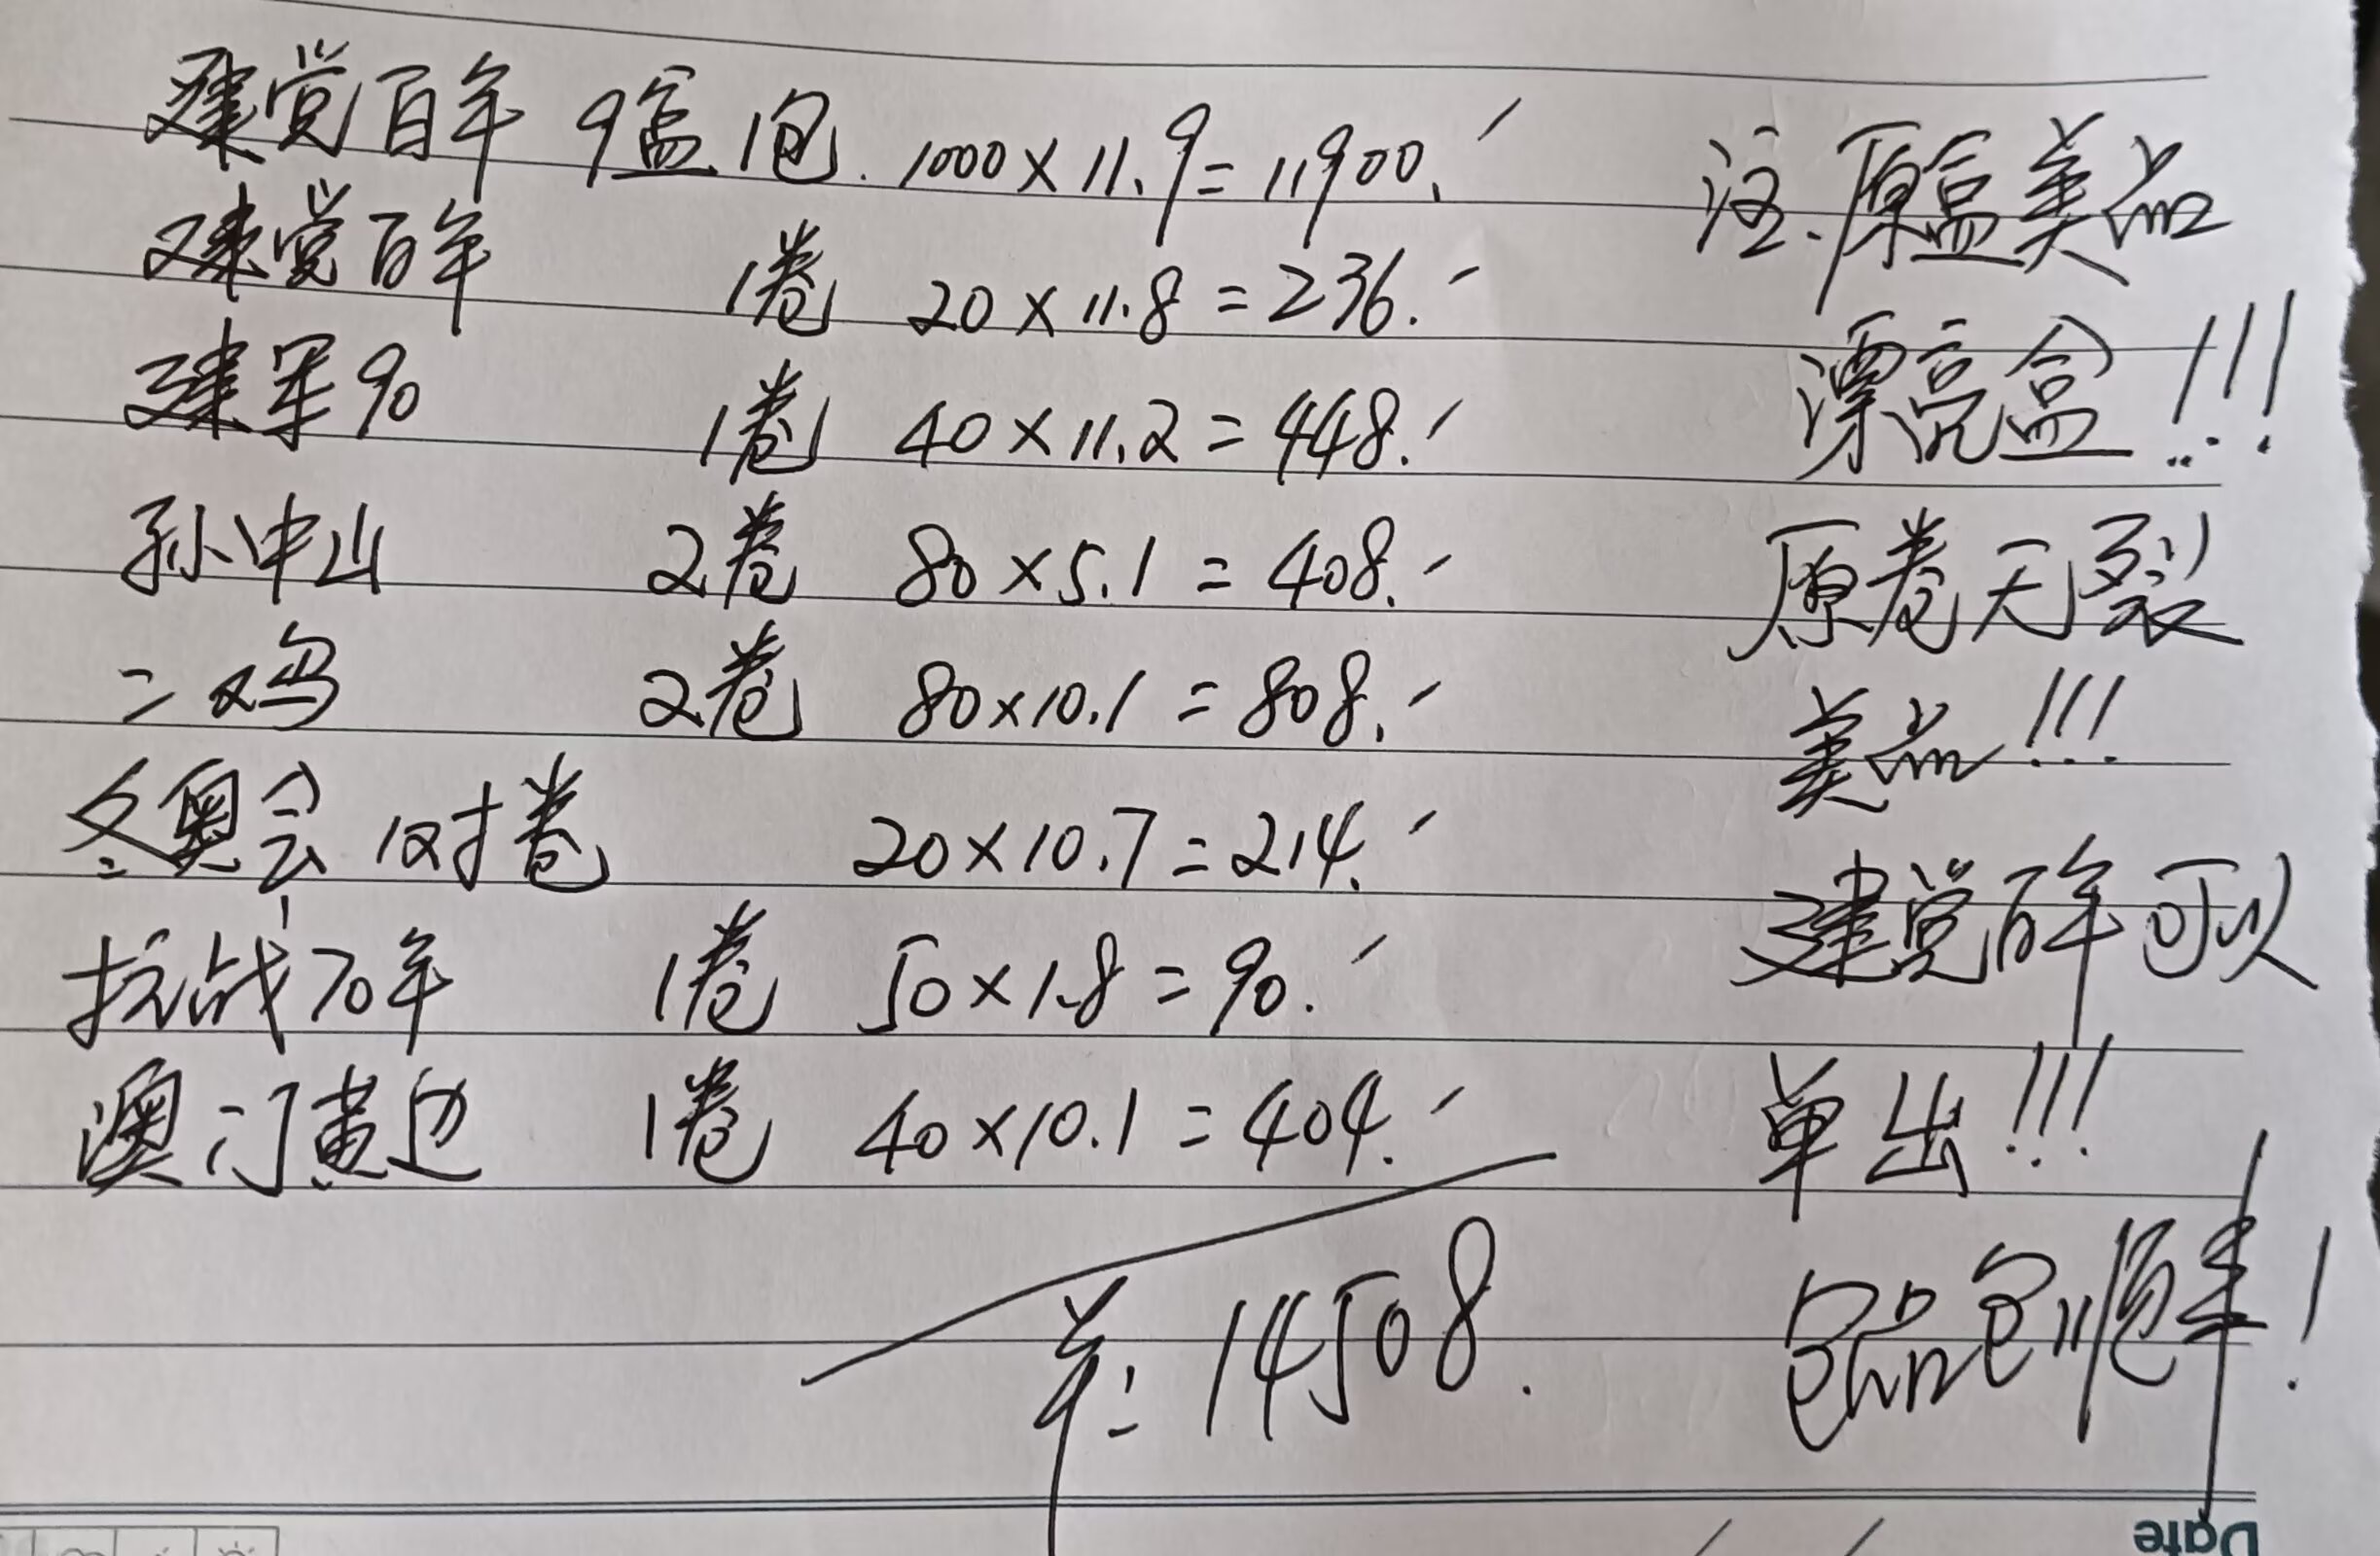 建党百年 9盒1包. 1000×11.9=11900.
建党百年 1卷 20×11.8=236.
建军90 1卷 40×11.2=448.
孙中山 2卷 80×5.1=408.
二鸡 2卷 80×10.1=808.
冬奥会1对卷 20×10.7=214.
抗战70年 1卷 50×1.8=90.
澳门黄边 1卷 40×10.1=404.
共:14508.
注.原盒美品
漂亮盒!!!
原卷无裂
美品!!!
建党百年可以
单出!!!
包品包顺丰!
Date